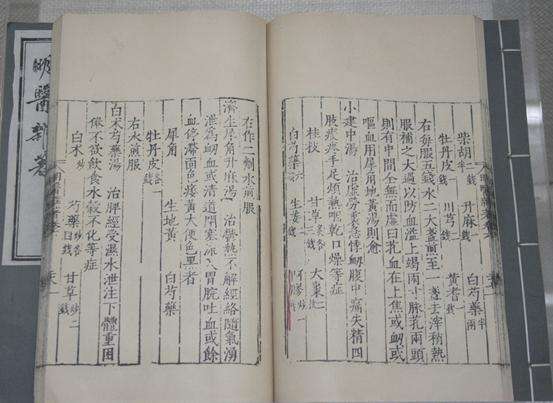 柴胡 升麻 白芍藥
牡丹皮 川芎 黃耆
右每服五錢水二大盞煎至一盞去滓稍熱
服補之大過以防血溢上竭兩寸脈芤兩頭
則有中間全無而虛曰芤血在上焦或衂或
嘔血用犀角地黃湯則愈
小建中湯 治虛勞裏急悸衂腹中痛失精四
肢痠疼手足煩熱咽乾口燥等症
桂枝 甘草 大棗
白芍藥 生姜
右作二劑水煎服
濟生犀角升麻湯 治熱不解經絡隨氣湧
泄為衂血或清道閉塞入胃脘吐血或餘
血停滯面色痿黃大便色黑者
犀角 生地黃 白芍藥
牡丹皮
右水煎服
白朮芍藥湯 治脾經受濕水泄注下體重困
倦不欲飲食水穀不化等症
白朮 芍藥 甘草
明醫雜著